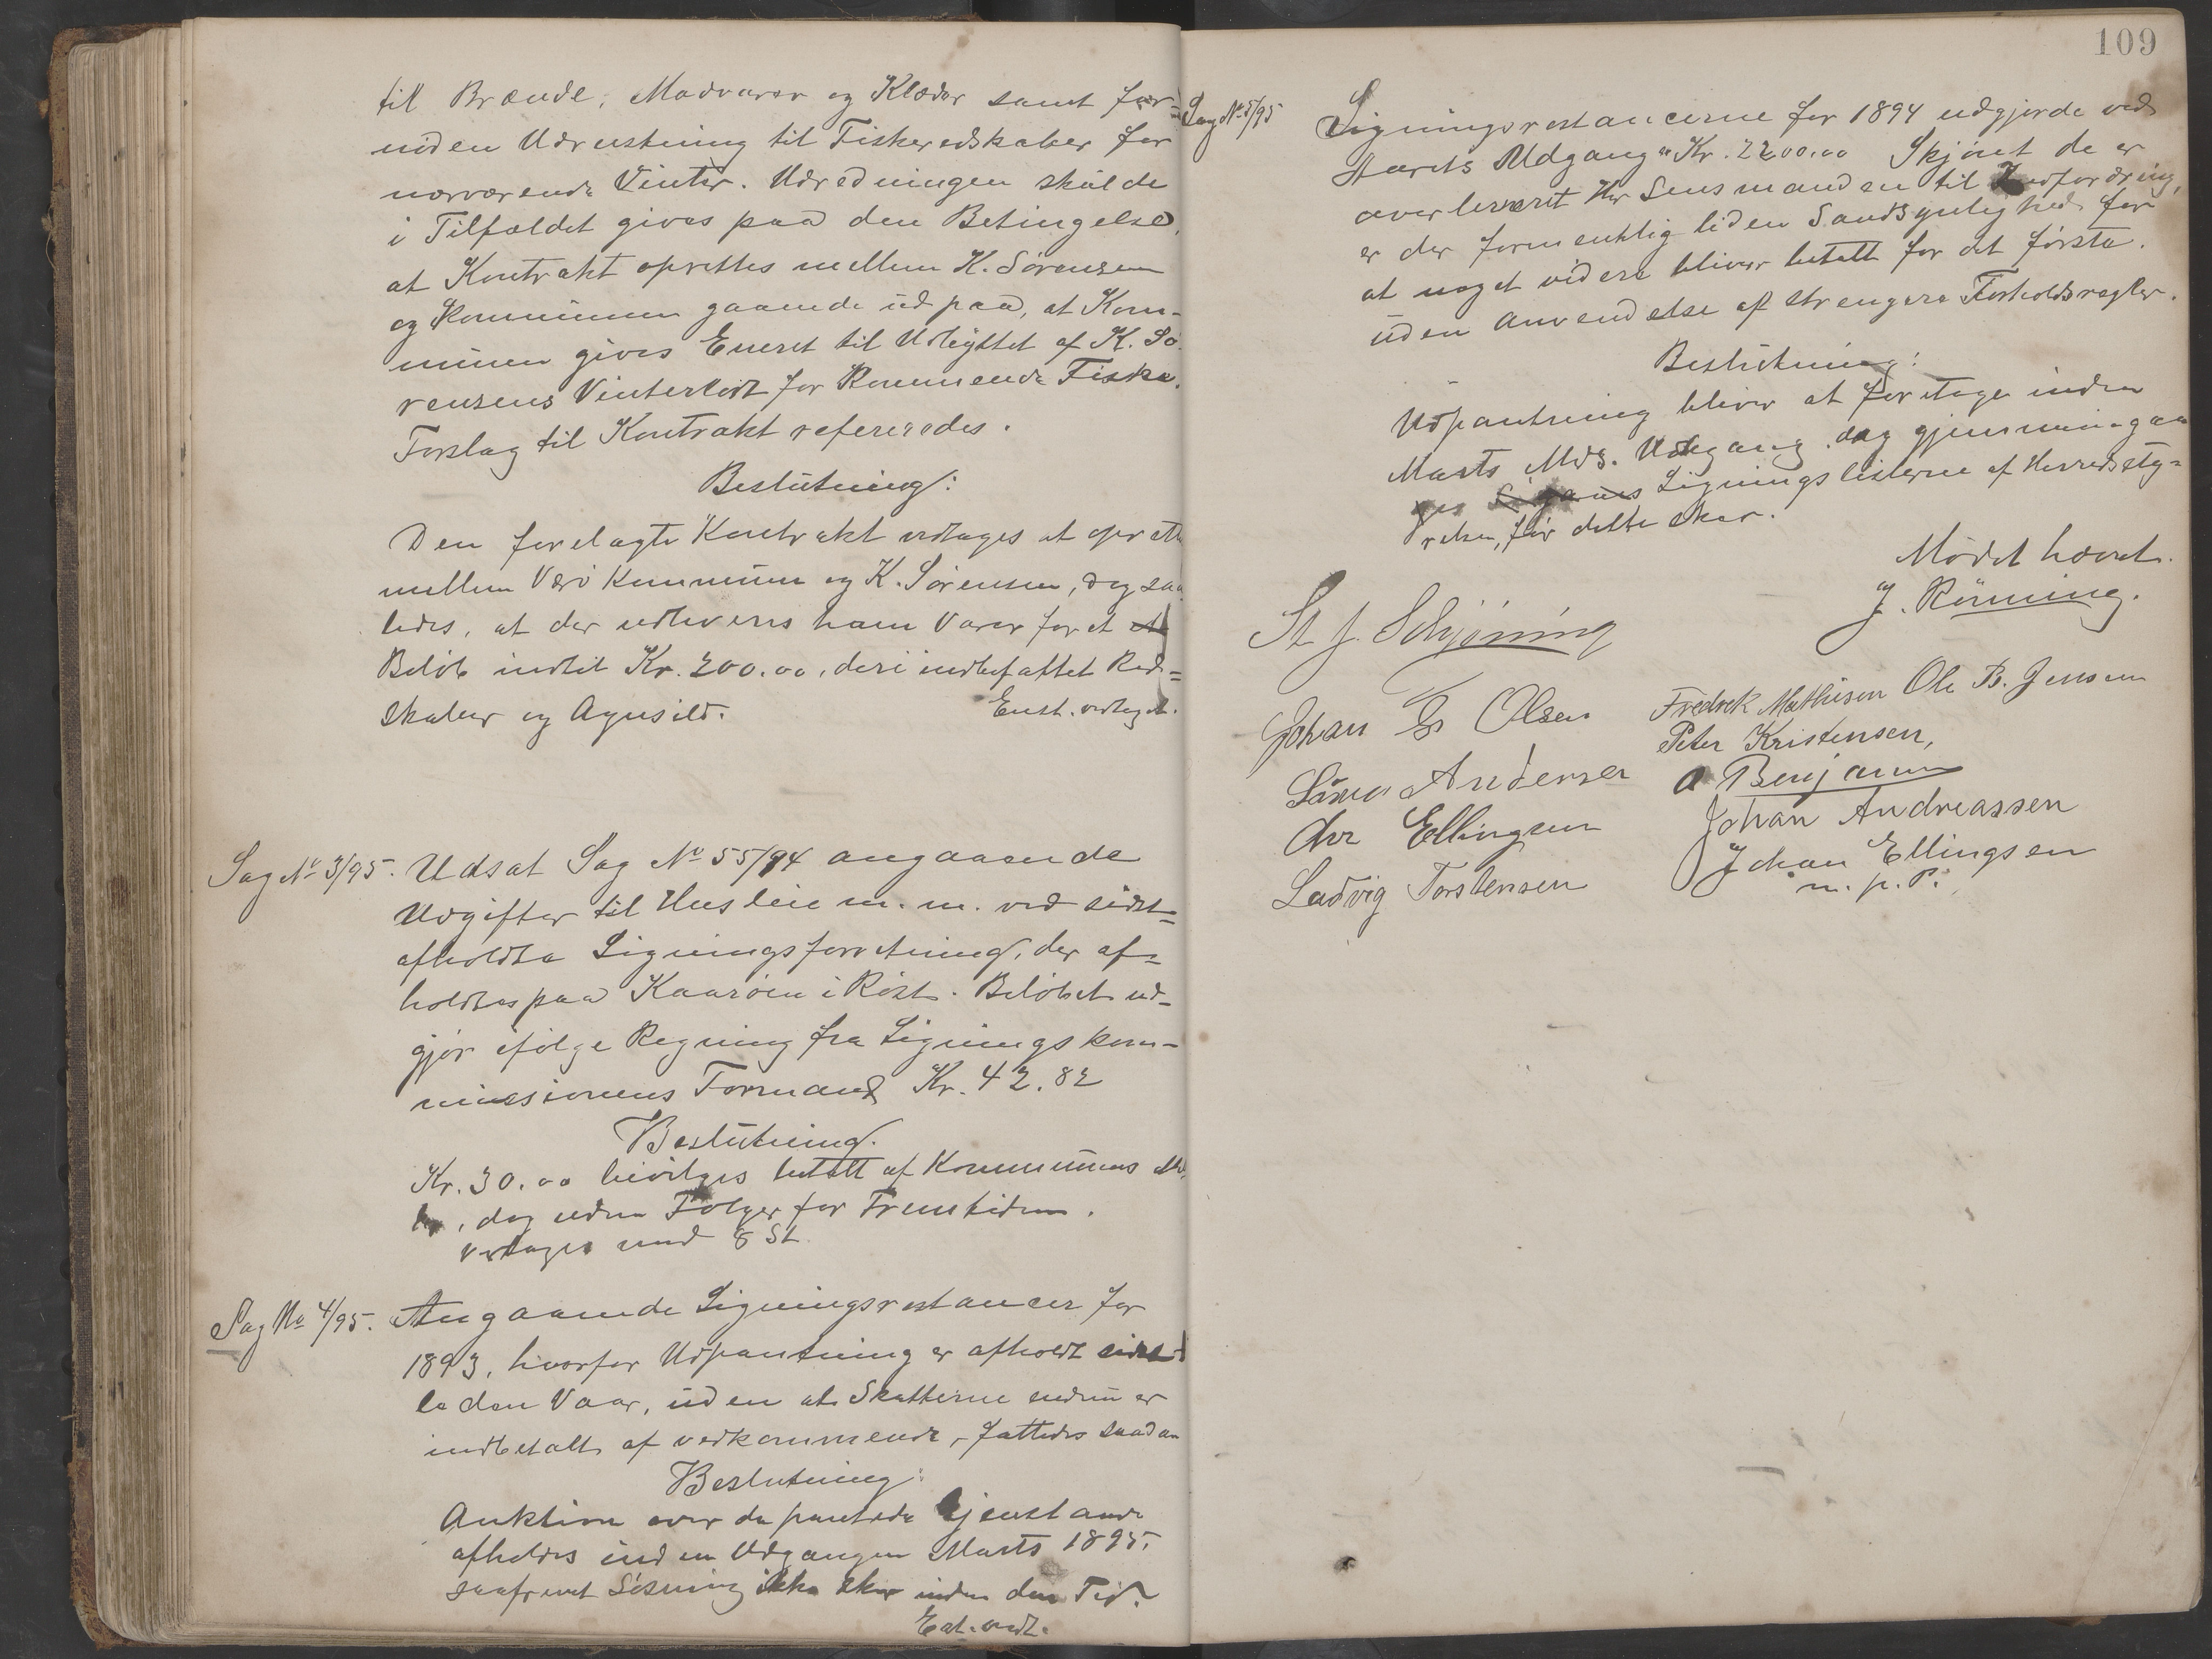 til Brænde, Madvarer og Klæder samt for-
uden Udrustning til Fiskeredskaber for
nærværende Vinter. Udredningen skulde
i Tilfældet gives paa den Betingelse,
at Kontrakt oprettes mellem K. Sørensen
og Kommunen gaaende ud paa, at Kom-
munen gives Eneret til Udbyttet af K. Sø-
rensens Vinterlodt for kommende Fiske.
Forslag til Kontrakt refereredes.
Beslutning:
Den forelagte Kontrakt vedtages at oprette
mellem Værø Kommune og K. Sørensen, dog saa
ledes, at der udleveres ham Varer for et
Beløb indtil Kr. 200.00, deri indbefattet Red=
skaber og Agnsild.
Enst. vedtaget.
Sag No 3/95. Udsat Sag No 55/94 angaaende
Udgifter til Husleie m. m. ved sidst=
afholdte Ligningsforretning, der af=
holdtes paa Kaarøen i Røst. Beløbet ud-
gjør ifølge Regning fra Ligningskom-
missionens Formand Kr. 42.82
Beslutning.
Kr. 30.00 bevilges betalt af Kommunens
dog uden Følger for Fremtiden.
Vedtages med 8 St
Sag No 4/95. Angaaende Ligningsrestancer for
1893, hvorfor Udpantning er afholdt sidst
leden Vaar, uden at Skatterne endnu er
indbetalt af vedkommende, fattedes saadan
Beslutning:
Auktion over de pantede Gjenstande
afholdes inden Udgangen Marts 1895,
saafremt Løsning ikke sker inden den Tid.
Enst. vedt.
109
Sag No 5/95
Ligningsrestancerne for 1894 udgjorde ved
Aarets Udgang Kr. 2200.00 Skjønt de er
overleveret Hr Lensmanden til Indfordring,
er der formentlig liden Sandsynlighed for
at noget videre bliver betalt for det første.
uden Anvendelse af strengere Forholdsregler.
Beslutning:
Udpantning bliver at foretage inden
Marts Mds. Udgang, dog gjennemgaa
es Ligningslisterne af Herredssty=
relsen, før dette sker.
Mødet hævet.
J. Rönning.
St J. Schjöning
Johan Olsen
Fredrek Mathisen Ole B. Jensen
Peter Kristensen,
Andersen
Benjamin
Chr Ellingsen
Johan Andreassen
Ludvig Torstensen
Johan Ellingsen
m. p. P.